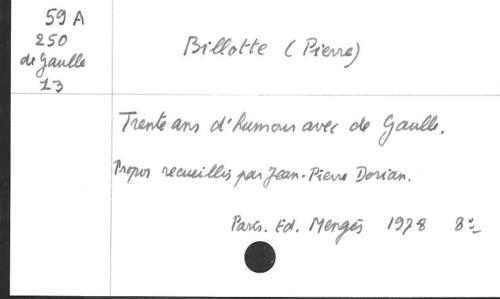 59 A
250
de Gaulle
13
Billotte (Pierre)
Trente ans d'humour avec de Gaulle.
Propos recueillis par Jean-Pierre Dorian.
Paris. Ed. Mengès 1978 8º